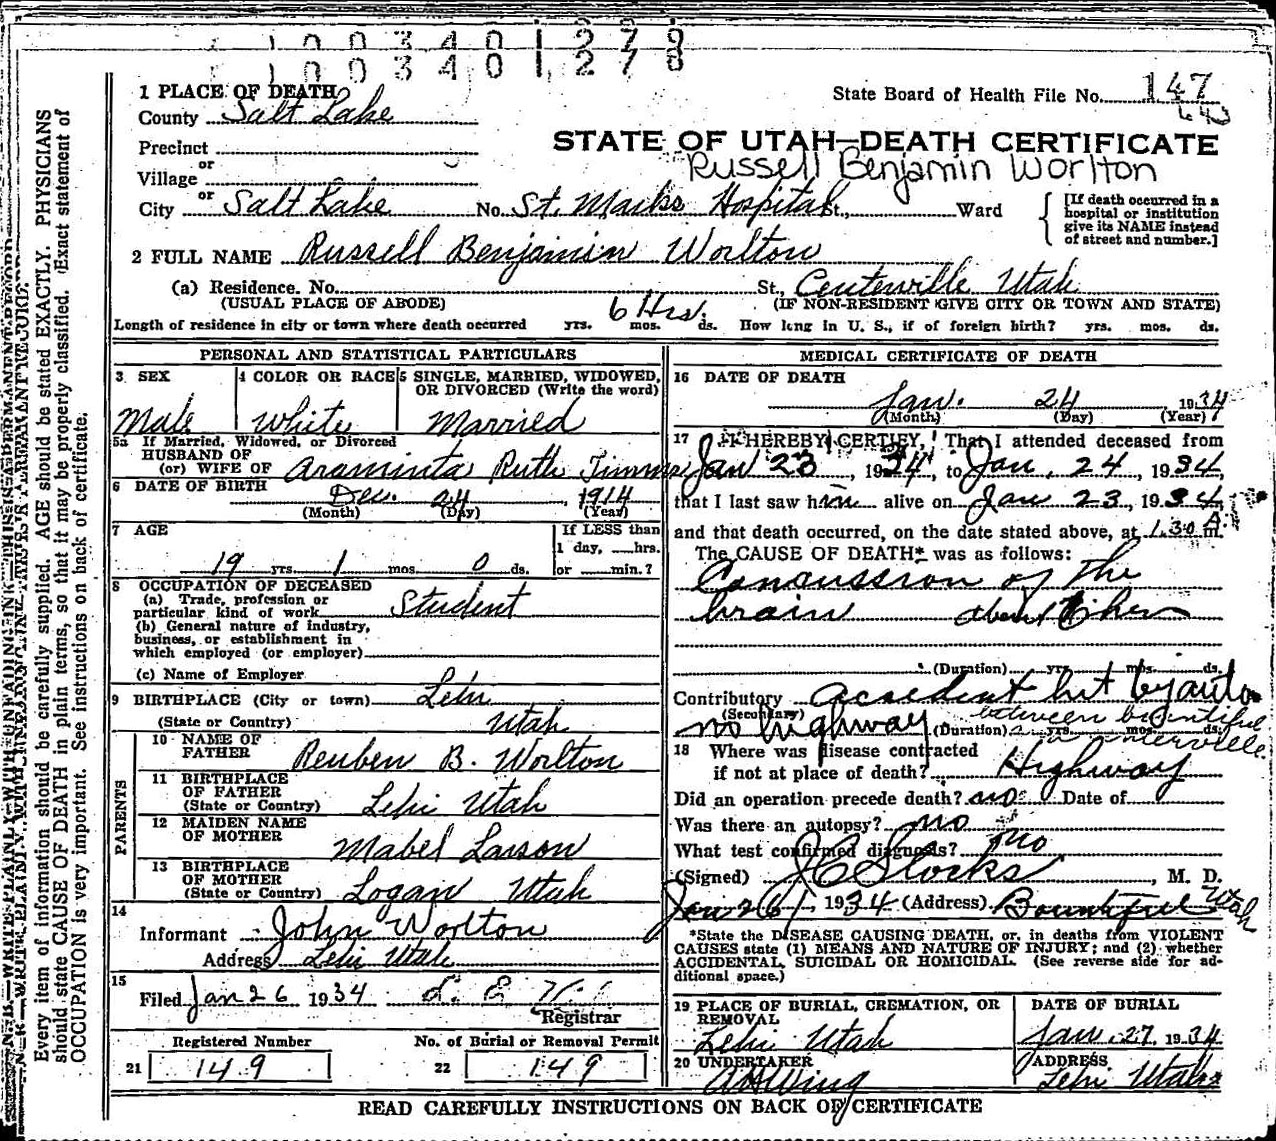 1003401279
1003401278
1 PLACE OF DEATH
County Salt Lake
State Board of Health File No. 147
Precinct
or
Village
STATE OF UTAH—DEATH CERTIFICATE
Russell Benjamin Worlton
or
City Salt Lake No. St. Marks Hospital St., Ward
[If death occurred in a hospital or institution give its NAME instead of street and number.]
2 FULL NAME Russell Benjamin Worlton
(a) Residence. No. St, Centerville Utah
(USUAL PLACE OF ABODE) (IF NON-RESIDENT GIVE CITY OR TOWN AND STATE)
6 Hrs.
Length of residence in city or town where death occurred yrs. mos. ds. How long in U. S., if of foreign birth? yrs. mos. ds.
PERSONAL AND STATISTICAL PARTICULARS
3 SEX
Male
4 COLOR OR RACE
White
5 SINGLE, MARRIED, WIDOWED,
OR DIVORCED (Write the word)
Married
5a If Married, Widowed, or Divorced
HUSBAND OF
(or) WIFE OF Araminta Ruth
6 DATE OF BIRTH Dec. 24, 1914
(Month) (Day) (Year)
7 AGE
19 yrs. 1 mos. 0 ds.
If LESS than
1 day, hrs.
or min.?
8 OCCUPATION OF DECEASED
(a) Trade, profession or
particular kind of work Student
(b) General nature of industry,
business, or establishment in
which employed (or employer)
(c) Name of Employer
9 BIRTHPLACE (City or town) Lehi
(State or Country) Utah
PARENTS
10 NAME OF
FATHER Reuben B. Worlton
11 BIRTHPLACE
OF FATHER
(State or Country) Lehi Utah
12 MAIDEN NAME
OF MOTHER Mabel Larson
13 BIRTHPLACE
OF MOTHER
(State or Country) Logan Utah
14
Informant John Worlton
Address Lehi Utah
15
Filed Jan 26 1934
Registrar
Registered Number
21 149
No. of Burial or Removal Permit
22 149
MEDICAL CERTIFICATE OF DEATH
16 DATE OF DEATH
Jan. 24 1934
(Month) (Day) (Year)
17 I HEREBY CERTIFY, That I attended deceased from
Jan 23, 1934, to Jan. 24, 1934,
that I last saw him alive on Jan 23, 1934,
and that death occurred, on the date stated above, at 1.30 A. m.
The CAUSE OF DEATH* was as follows:
Concussion of the
brain
(Duration) yrs. mos. ds.
Contributory accident hit by auto
(Secondary)
highway between Bountiful
(Duration) yrs. mos. ds.
18 Where was disease contracted
if not at place of death? Highway
Did an operation precede death? no Date of
Was there an autopsy? no
What test confirmed diagnosis? no
(Signed) J C Stocks, M. D.
Jan 26, 1934 (Address) Bountiful Utah
*State the DISEASE CAUSING DEATH, or, in deaths from VIOLENT
CAUSES state (1) MEANS AND NATURE OF INJURY; and (2) whether
ACCIDENTAL, SUICIDAL OR HOMICIDAL. (See reverse side for ad-
ditional space.)
19 PLACE OF BURIAL, CREMATION, OR
REMOVAL
Lehi Utah
DATE OF BURIAL
Jan. 27 1934
20 UNDERTAKER
ADDRESS
Lehi Utah
READ CAREFULLY INSTRUCTIONS ON BACK OF CERTIFICATE
Every item of information should be carefully supplied. AGE should be stated EXACTLY. PHYSICIANS
should state CAUSE OF DEATH in plain terms, so that it may be properly classified. Exact statement of
OCCUPATION is very important. See instructions on back of certificate.